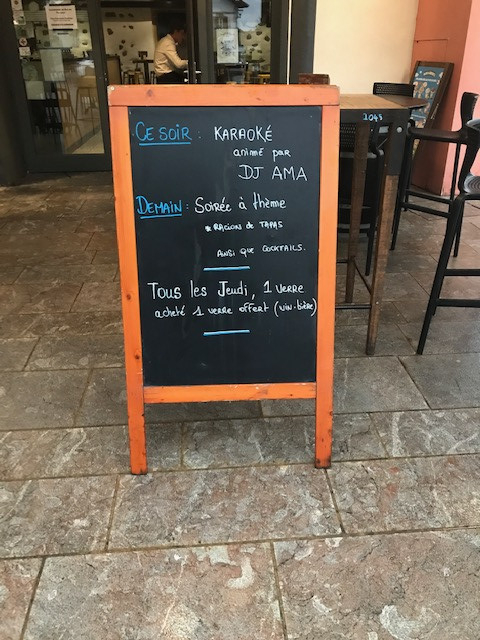 CE SOIR : KARAOKÉ
animé par
DJ AMA
DEMAIN : Soirée à thème
* RACION de TAPAS
AINSI QUE COCKTAILS.
Tous les Jeudi, 1 verre
acheté 1 verre offert (vin-bière)
1048